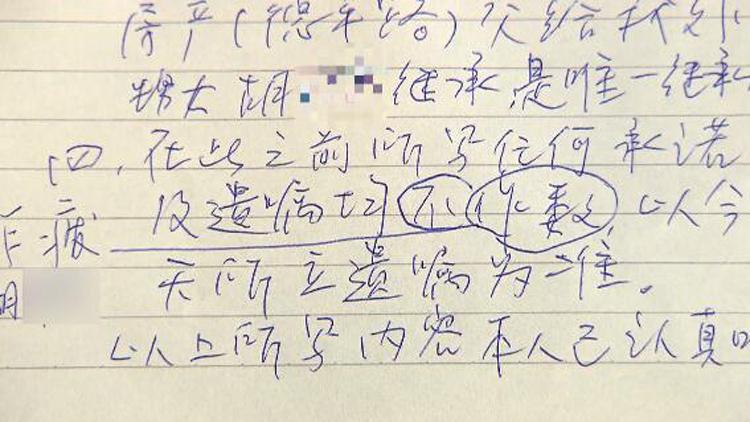 房产(德平路)交给我外
甥女胡 继承是唯一继承
四、在此之前所写任何承诺
及遺嘱均不作数,以今
天所立遺嘱为准。
以上所写内容本人已认真